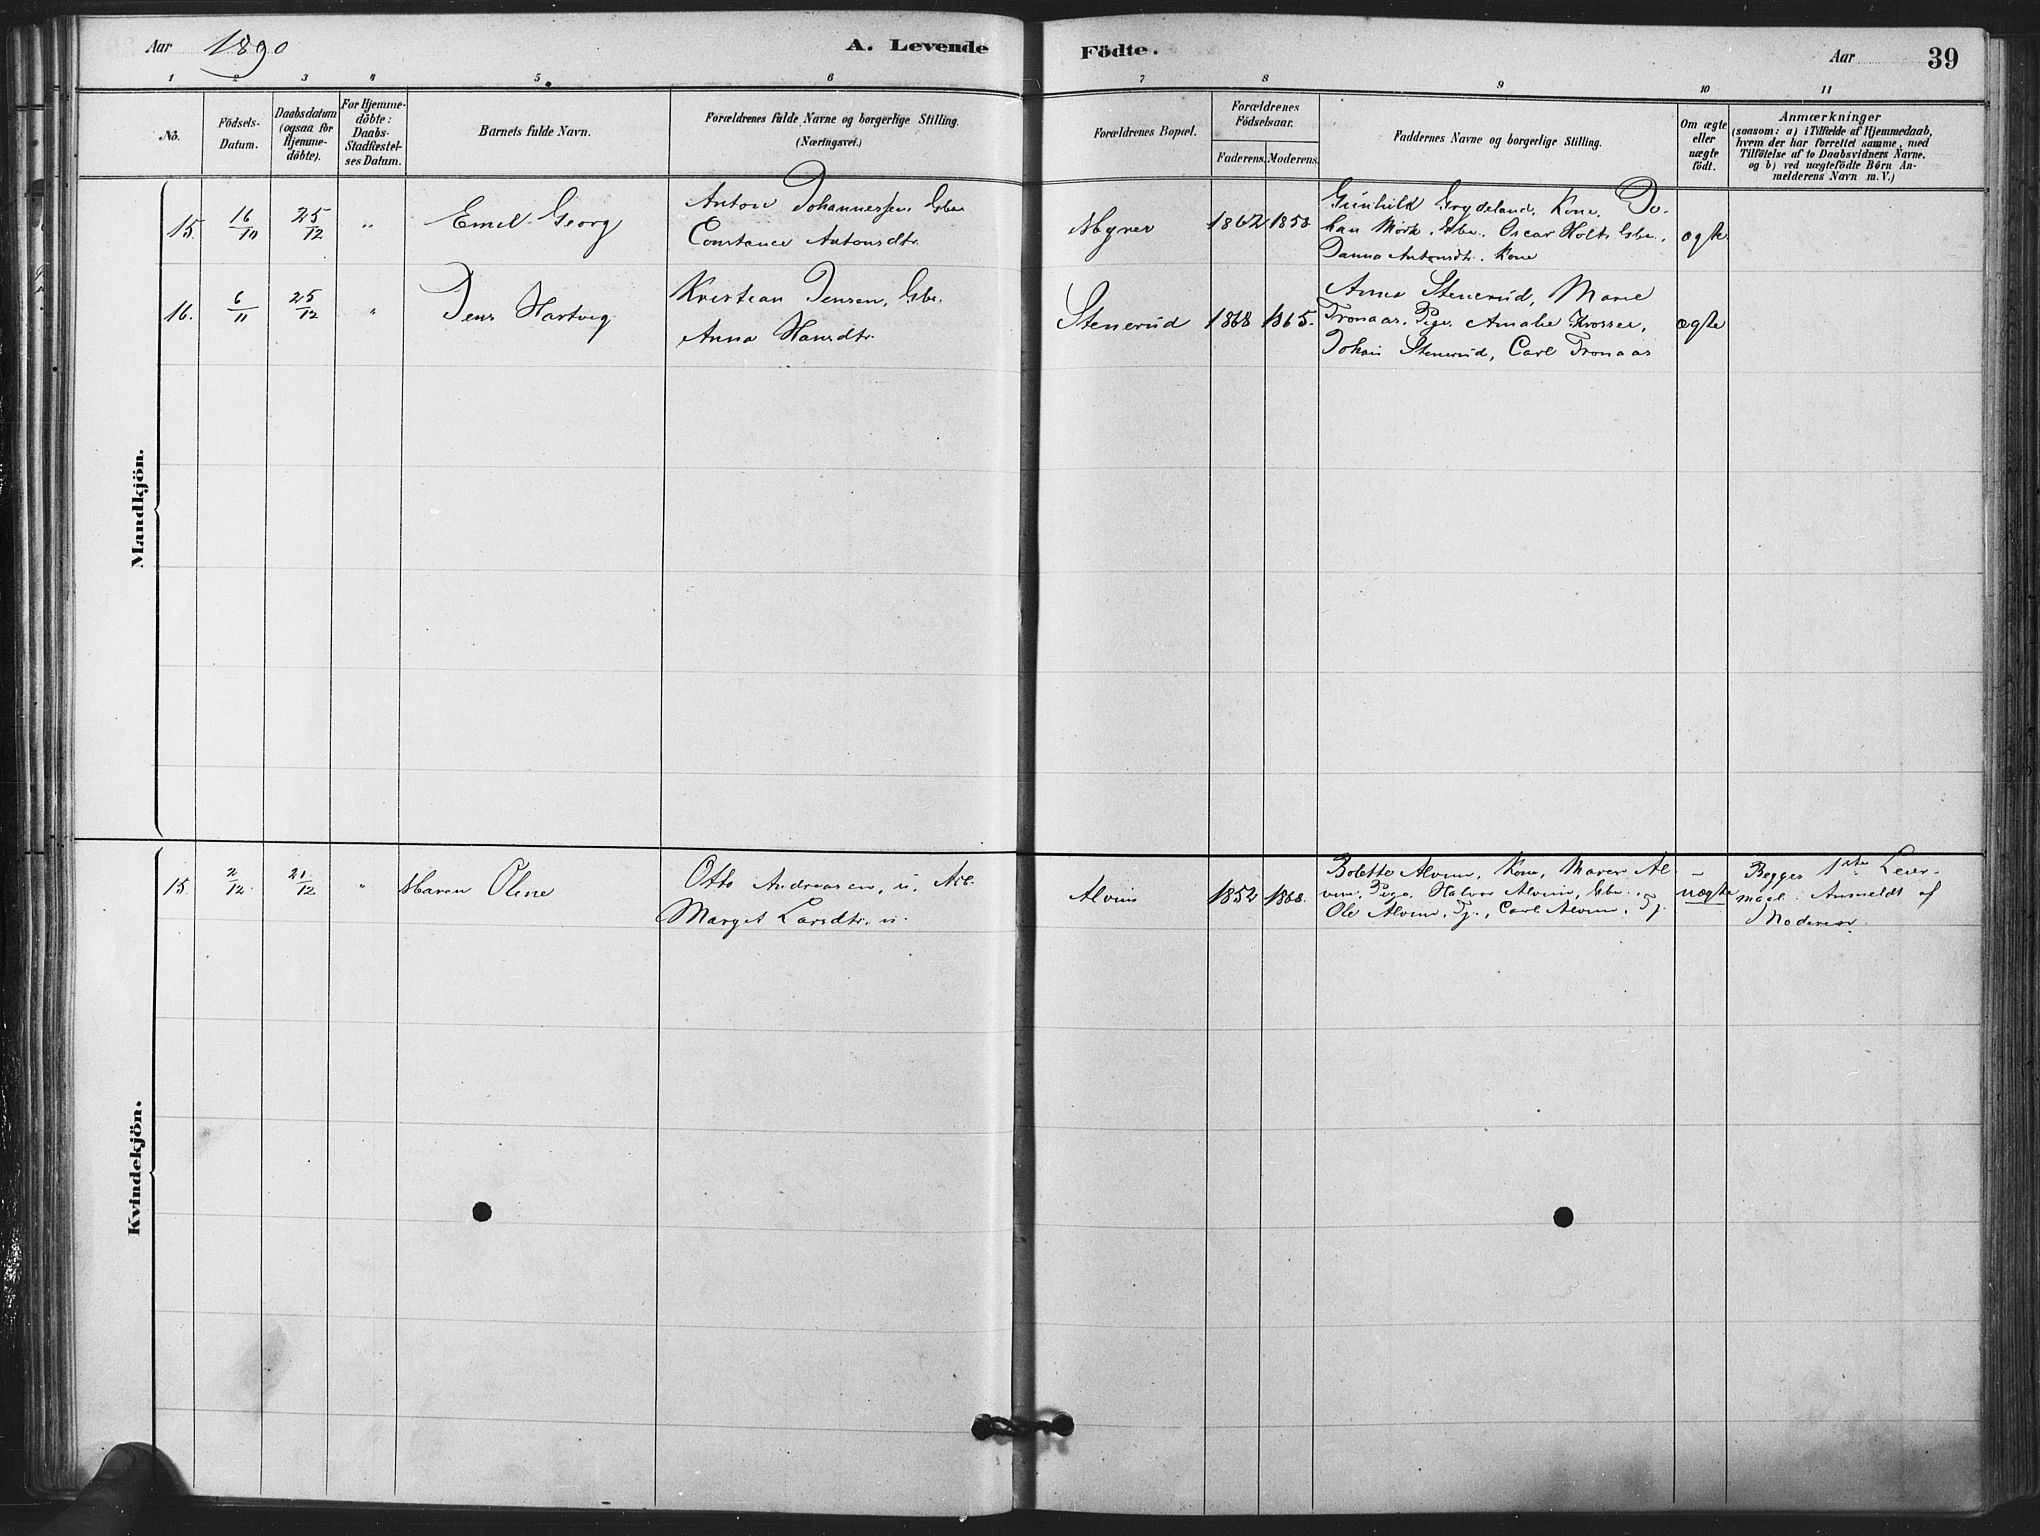 Aar 1890
A. Levende
Födte.
Aar
39
1 2 3 4 5 6 7 8 9 10 11
No.
Födsels-
Datum.
Daabsdatum
(ogsaa for
Hjemme-
döbte).
For Hjemme-
döbte:
Daabs-
Stadfæstel-
ses Datum.
Barnets fulde Navn.
Forældrenes fulde Navne og borgerlige Stilling.
(Næringsvei.)
Forældrenes Bopæl.
Forældrenes
Födselsaar.
Faderens. Moderens.
Faddernes Navne og borgerlige Stilling.
Om ægte
eller
uægte
födt.
Anmærkninger
(saasom: a) i Tilfælde af Hjemmedaab,
hvem der har forrettet samme, med
Tilföielse af to Daabsvidners Navne.
og b) ved uægtefödte Börn An-
melderens Navn m. V.)
Mandkjön.
15. 16/10 25/12 " Emil Georg
Anton Johannessen, Gbr.
Constance Antonsdtr.
1862 1858
Gunhild Grydeland, Kone, Jo-
han Mörk, Gbr., Oscar Holt, Gbr.,
Janna Antonsdtr. Kone
ægte
16. 6/11 25/12 " Jens Hartvig
Kristian Jensen, Gbr.
Anna Hansdtr.
Stenerud 1868 1865.
Anna Stenerud, Marie
Tronaas, Pige, Amalie
Johan Stenerud, Carl Tronaas
ægte
Kvindekjön.
15. 2/12. 21/12 " Maren Oline
Otto Andreassen, u. Arb.
Marget Larsdtr. u.
Alvim 1852 1868.
Bolette Alvim, Kone, Maren Al-
vim, Pige, Halvor Alvim, Gbr.,
Ole Alvim, Tj., Carl Alvim, Tj.
uægte
Begges 1ste Leier-
maal. Anmeldt af
Moderen.